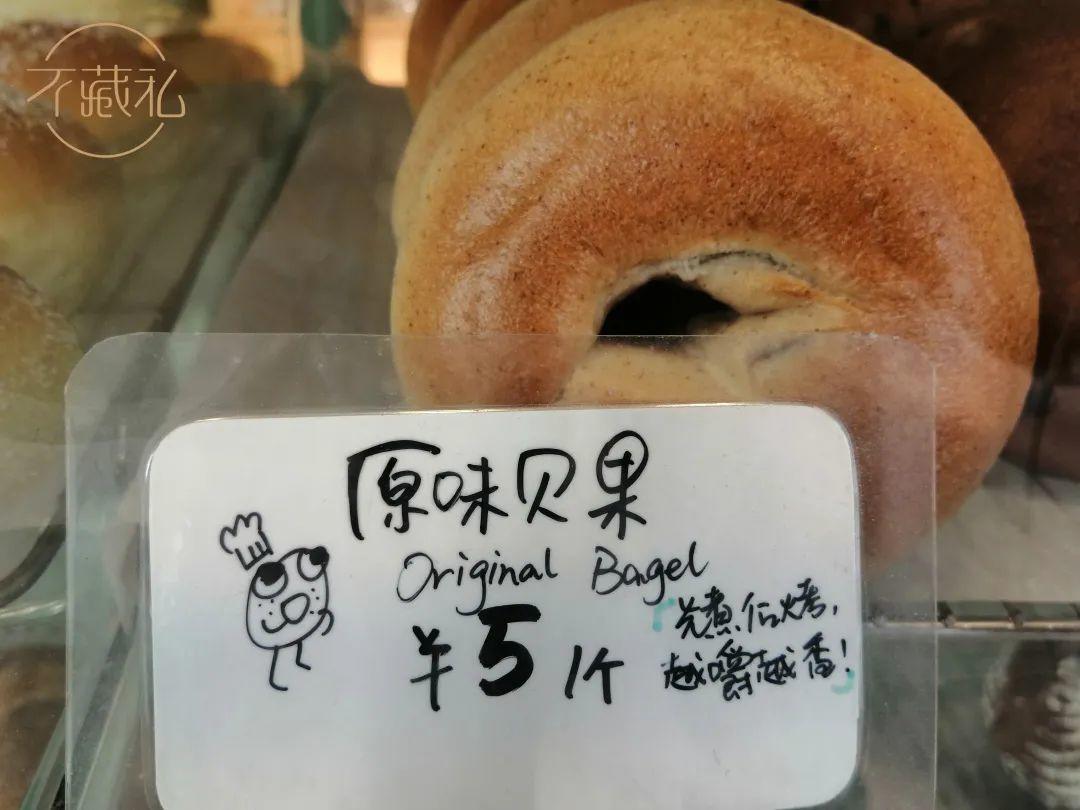 不藏私
原味贝果
Original Bagel
¥5/个
先煮后烤,
越嚼越香!